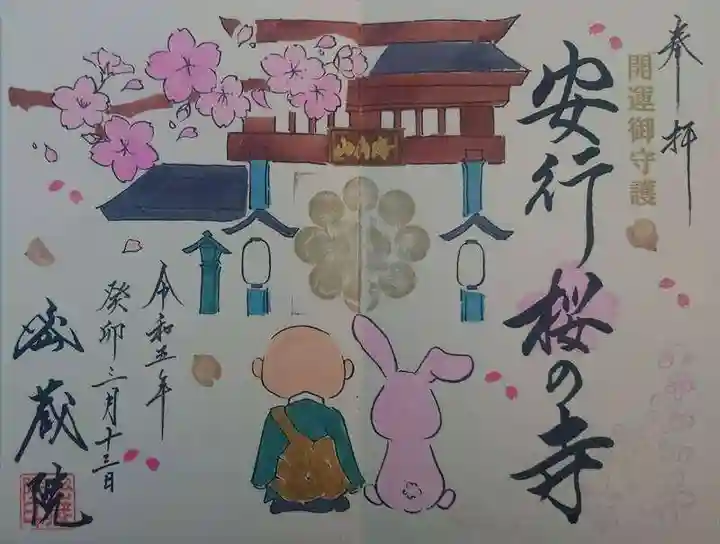 奉拝
開運御守護
安行桜の寺
令和五年
癸卯三月十三日
密蔵院